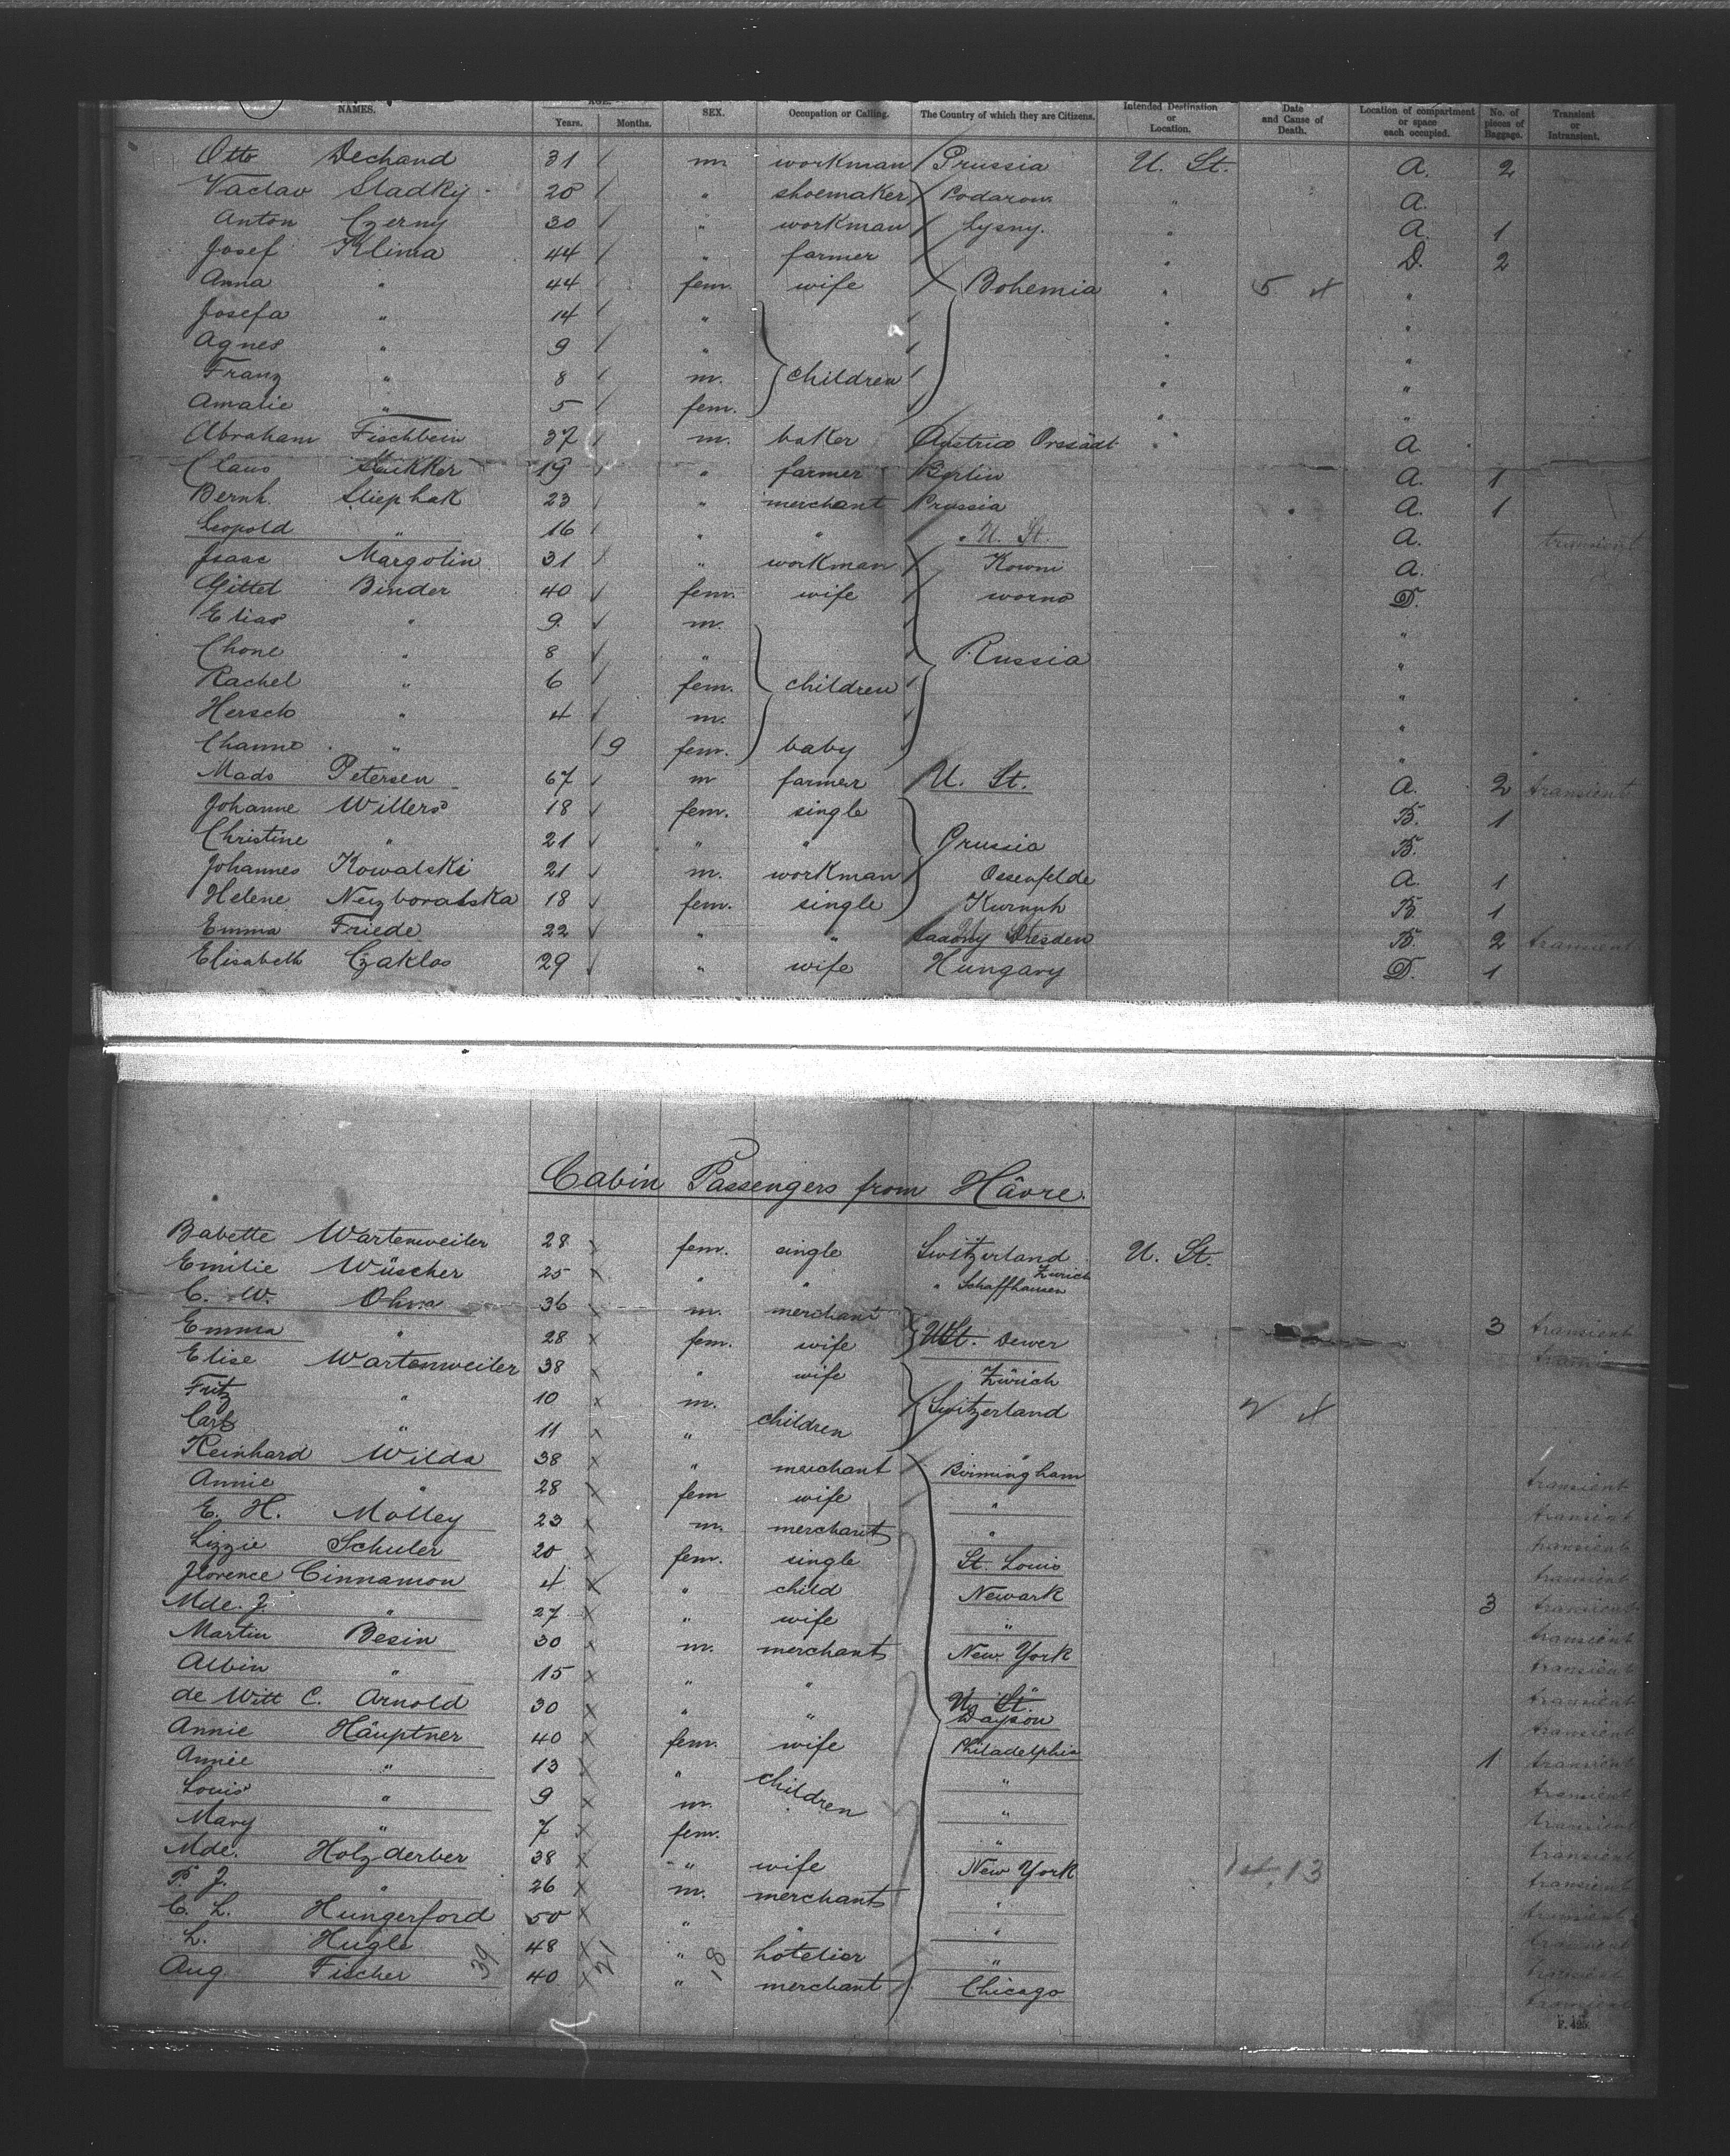 NAMES. AGE. Years. Months. SEX. Occupation or Calling. The Country of which they are Citizens. Intended Destination or Location. Date and Cause of Death. Location of compartment or space each occupied. No. of pieces of Baggage. Transient or Intransient.
Otto Dechand 31 m. workman Prussia U. St. A. 2
Vaclav Sladky 20 " shoemaker Podarow " A.
Anton Czerny 30 " workman Lysny. " A. 1
Josef Klima 44 " farmer " D. 2
Anna " 44 fem. wife Bohemia " 5 "
Josefa " 14 " " "
Agnes " 9 " " "
Franz " 8 m. children " "
Amalie " 5 fem. " "
Abraham Fischbein 37 m. baker Austria " A
Claus 19 " farmer Berlin A. 1
Bernh. Sliephak 23 " merchant Prussia A. 1
Leopold " 16 " " " U. St. A. transient
Isaac Margolin 31 " workman Kowni A.
Gittel Binder 40 fem. wife worno D.
Elias " 9. m. "
Chone " 8 " Russia "
Rachel " 6 fem. children "
Hersch " 4 m. "
Channe " 9 fem. baby "
Mads Petersen 67 m farmer U. St. A. 2 transient
Johanne Willers 18 fem. single B. 1
Christine " 21 " " Prussia B.
Johannes Kowalski 21 m. workman Ossenfelde A. 1
Helene 18 fem. single Kurnnh B. 1
Emma Friede 22 " " Saxony Dresden B. 2 transient
Elisabeth Czaklos 29 " wife Hungary D. 1
Cabin Passengers from Hâvre.
Babette Wartenweiler 28 fem. single Switzerland U. St.
Zürich
Emilie Wüscher 25 " " " Schaffhausen
C. W. Ohm 36 m. merchant 3 transient
Emma " 28 fem. wife U St. Dewer
Elise Wartenweiler 38 " wife Zürich
Fritz " 10 m. Switzerland 2
Carl " 11 " children
Reinhard Wilda 38 " merchant Birmingham transient
Annie " 28 fem wife " transient
E. H. Molley 23 m. merchant " transient
Lizzie Schuler 20 fem. single St. Louis transient
Florence Cinnamon 4 " child Newark 3 transient
Mde. J. " 27 " wife " transient
Martin Besin 30 m. merchant New York transient
Albin " 15 " " " transient
de Witt C. Arnold 30 " " U. St. Dayton transient
Annie Häuptner 40 fem. wife Philadelphia 1 transient
Annie " 13 " children " transient
Louis " 9 m. " transient
Mary " 7 fem. " transient
Mde. Holzderber 38 " wife New York 13 transient
P. J. " 26 m. merchant " transient
C. L. Hungerford 50 " " transient
L. Hugle 48 " hotelier " transient
Aug. Fischer 39 40 21 " 18 merchant Chicago transient